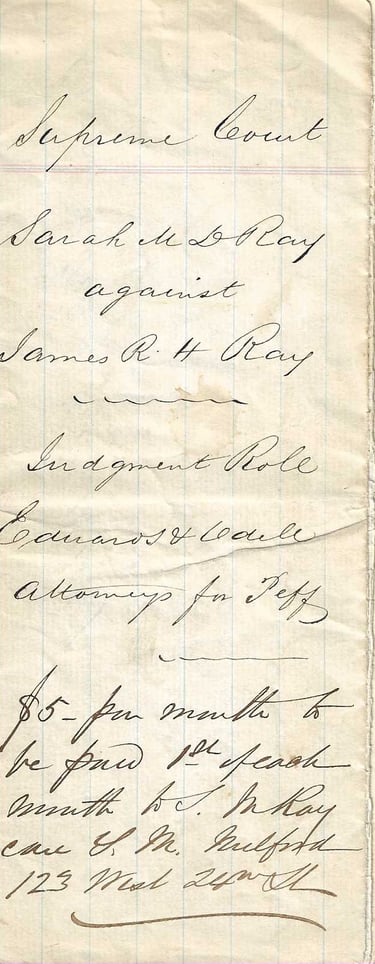 Supreme Court
Sarah M D Ray
against
James R. H Ray
Judgment Roll
Edwards & Odell
Attorneys for Peff
$5 - per month to
be paid 1st of each
month to S. M Ray
care S. M. Mulford
123 West 24th St